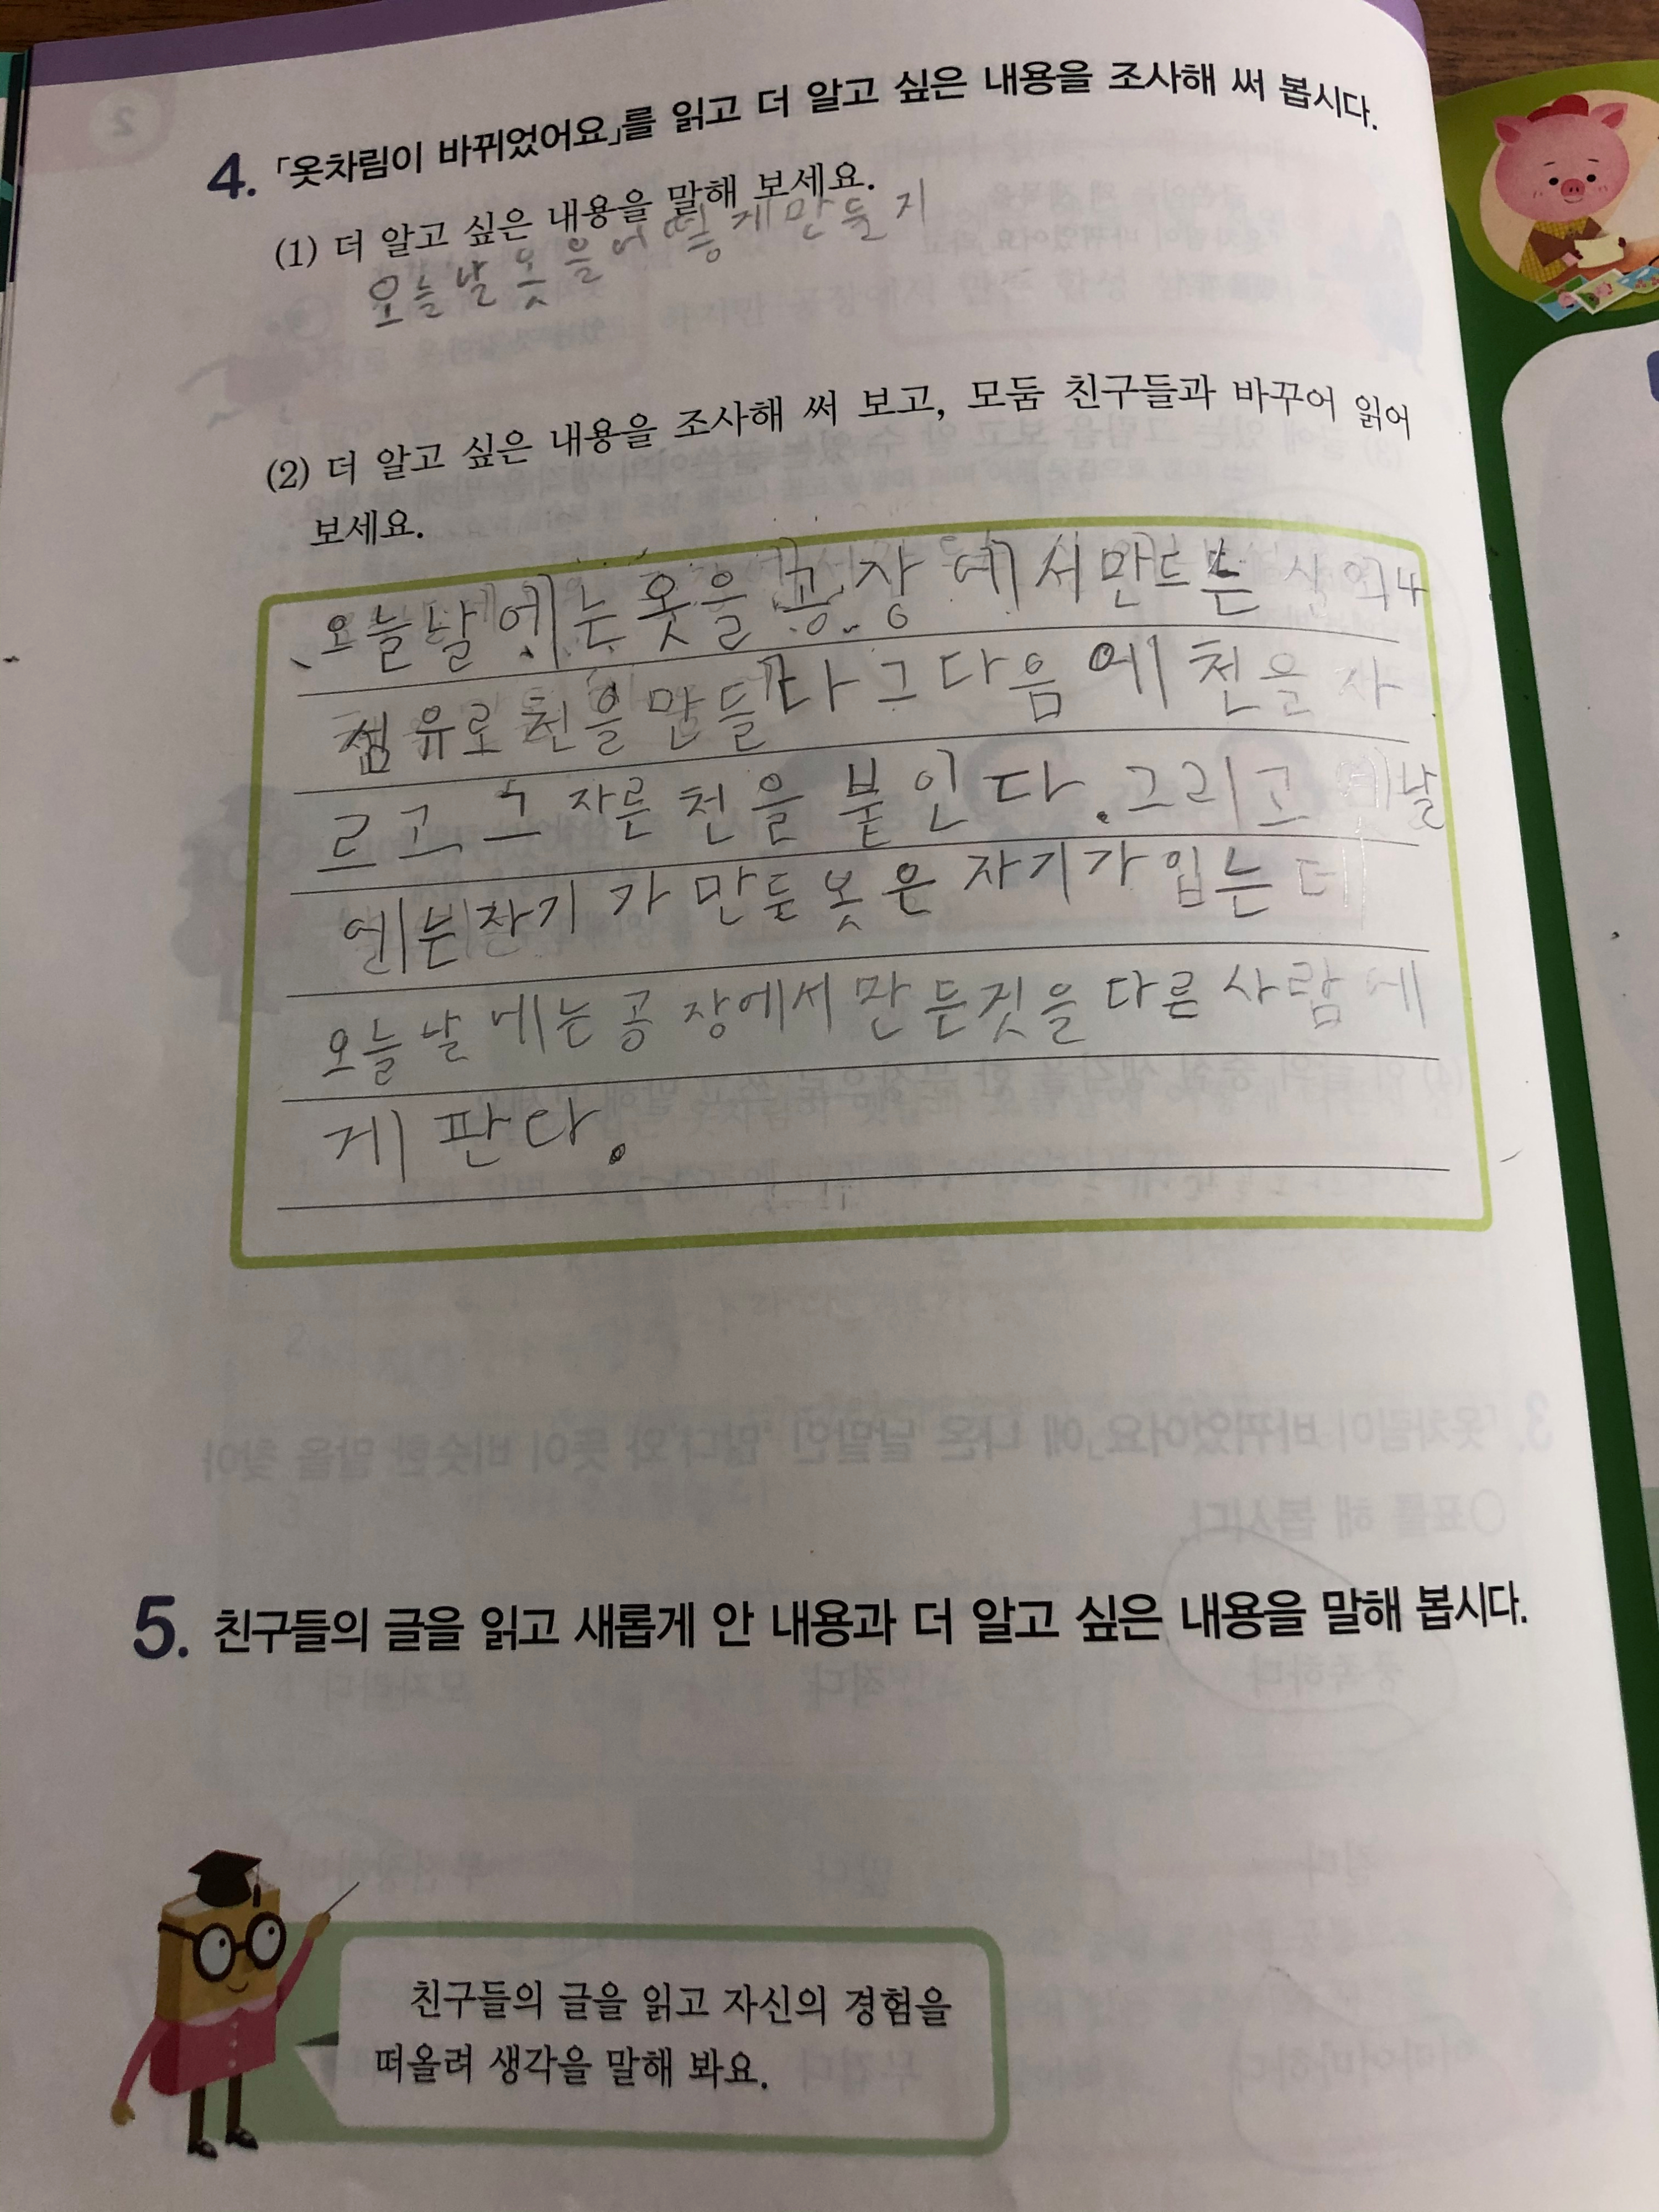 4. 「옷차림이 바뀌었어요」를 읽고 더 알고 싶은 내용을 조사해 써 봅시다.
(1) 더 알고 싶은 내용을 말해 보세요.
오늘날 옷을 어떻게 만들지
(2) 더 알고 싶은 내용을 조사해 써 보고, 모둠 친구들과 바꾸어 읽어
보세요.
오늘날에는 옷을 공장에서 만드는 실
섬유로 천을 만들다 그다음에 천을 자
르고 그 자른 천을 붙인다. 그리고 옛날
에는 자기가 만든 옷은 자기가 입는데
오늘날에는 공장에서 만든것을 다른 사람에
게 판다.
5. 친구들의 글을 읽고 새롭게 안 내용과 더 알고 싶은 내용을 말해 봅시다.
친구들의 글을 읽고 자신의 경험을
떠올려 생각을 말해 봐요.